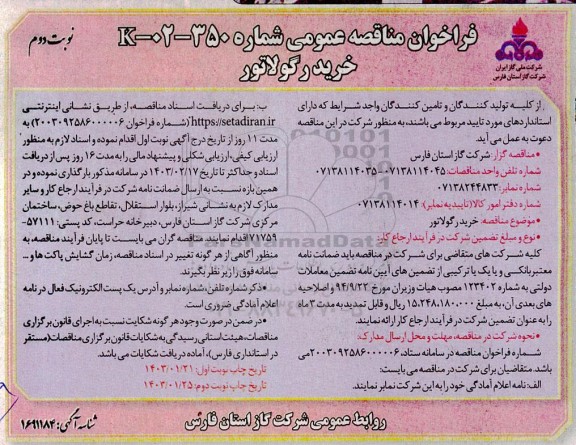 فراخوان مناقصه عمومی شماره ۳۵۰-۰۲-K
خرید رگولاتور
نوبت دوم
شرکت ملی گاز ایران
شرکت گاز استان فارس
از کلیه تولید کنندگان و تامین کنندگان واجد شرایط که دارای
استانداردهای مورد تایید مربوط می باشند، به منظور شرکت در این مناقصه
دعوت به عمل می آید.
• مناقصه گزار: شرکت گاز استان فارس
شماره تلفن واحد مناقصات: ۰۷۱۳۸۱۱۴۰۴۵-۰۷۱۳۸۱۱۴۰۳۵
شماره نمابر: ۰۷۱۳۸۲۴۴۸۳۳
شماره دفتر امور کالا (تاییدیه نمابر): ۰۷۱۳۸۱۱۴۰۱۴
• موضوع مناقصه: خرید رگولاتور
• نوع و مبلغ تضمین شرکت در فرآیند ارجاع کار:
کلیه شرکت های متقاضی برای شرکت در مناقصه باید ضمانت نامه
معتبر بانکی و یا یک یا ترکیبی از تضمین های آیین نامه تضمین معاملات
دولتی به شماره ۱۲۳۴۰۲ مصوب هیات وزیران مورخ ۹۴/۹/۲۲ و اصلاحیه
های بعدی آن، به مبلغ ۱۵.۲۴۸.۱۸۰.۰۰۰ ریال و قابل تمدید به مدت ۳ ماه
را به عنوان تضمین شرکت در فرآیند ارجاع کار ارائه نمایند.
• نحوه شرکت در مناقصه، مهلت و محل ارسال مدارک:
شماره فراخوان مناقصه در سامانه ستاد، ۲۰۰۳۰۹۲۵۸۶۰۰۰۰۰۶ می
باشد. متقاضیان برای شرکت در مناقصه می بایست:
الف: نامه اعلام آمادگی خود را به این شرکت نمابر نمایند.
ب: برای دریافت اسناد مناقصه، از طریق نشانی اینترنتی
https://setadiran.ir (شماره فراخوان ۲۰۰۳۰۹۲۵۸۶۰۰۰۰۰۶) به
مدت ۱۱ روز از تاریخ درج آگهی نوبت اول اقدام نموده و اسناد لازم به منظور
ارزیابی کیفی، ارزیابی شکلی و پیشنهاد مالی را به مدت ۱۶ روز پس از دریافت
اسناد و حداکثر تا تاریخ ۱۴۰۳/۰۲/۱۷ در سامانه مذکور بارگذاری نموده و در
همین بازه نسبت به ارسال ضمانت نامه شرکت در فرآیند ارجاع کار و سایر
مدارک لازم به نشانی شیراز، بلوار استقلال، تقاطع باغ حوض، ساختمان
مرکزی شرکت گاز استان فارس، دبیرخانه حراست، کد پستی: ۵۷۱۱۱-
۷۱۷۵۹ اقدام نمایند. مناقصه گران می بایست تا پایان فرآیند مناقصه، به
منظور آگاهی از هر گونه تغییر در اسناد مناقصه، زمان گشایش پاکت ها و ...
سامانه فوق را زیر نظر بگیرند.
• ذکر شماره تلفن، شماره نمابر و آدرس یک پست الکترونیک فعال در نامه
اعلام آمادگی ضروری است.
• در ضمن در صورت وجود هر گونه شکایت نسبت به اجرای قانون برگزاری
مناقصات، هیئت استانی رسیدگی به شکایات قانون برگزاری مناقصات (مستقر
در استانداری فارس)، آماده دریافت شکایات می باشد.
تاریخ چاپ نوبت اول: ۱۴۰۳/۰۱/۲۱
تاریخ چاپ نوبت دوم: ۱۴۰۳/۰۱/۲۵
روابط عمومی شرکت گاز استان فارس
شناسه آگهی: ۱۶۹۱۱۸۴